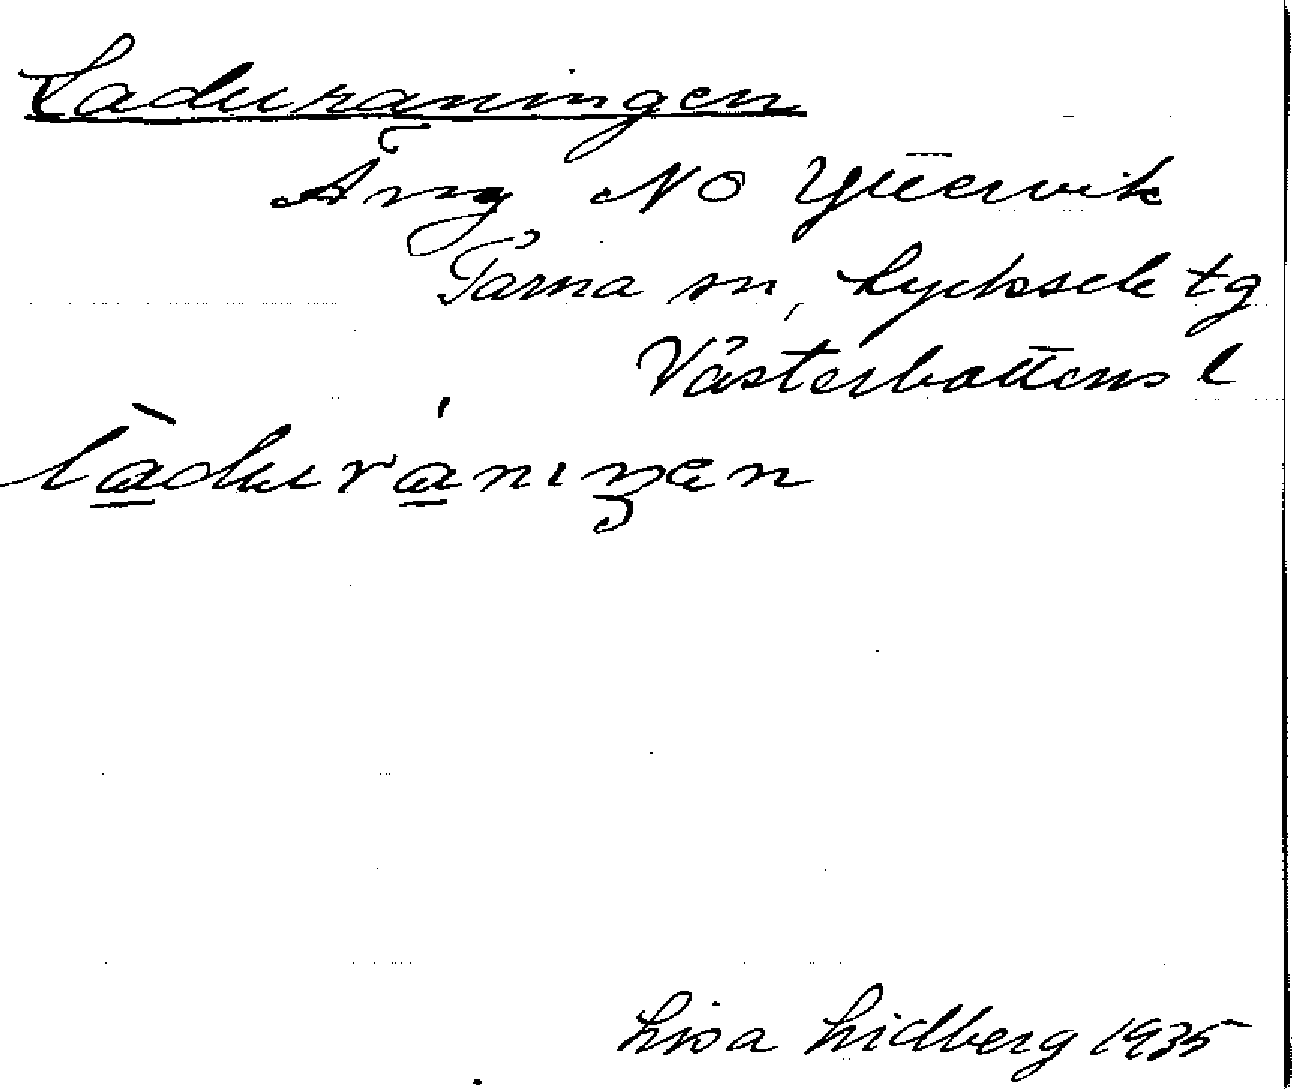 Laduraningen
Äng NO Yttervik
Tärna sn, Lycksele tg
Västerbottens l
Lisa Lidberg 1935